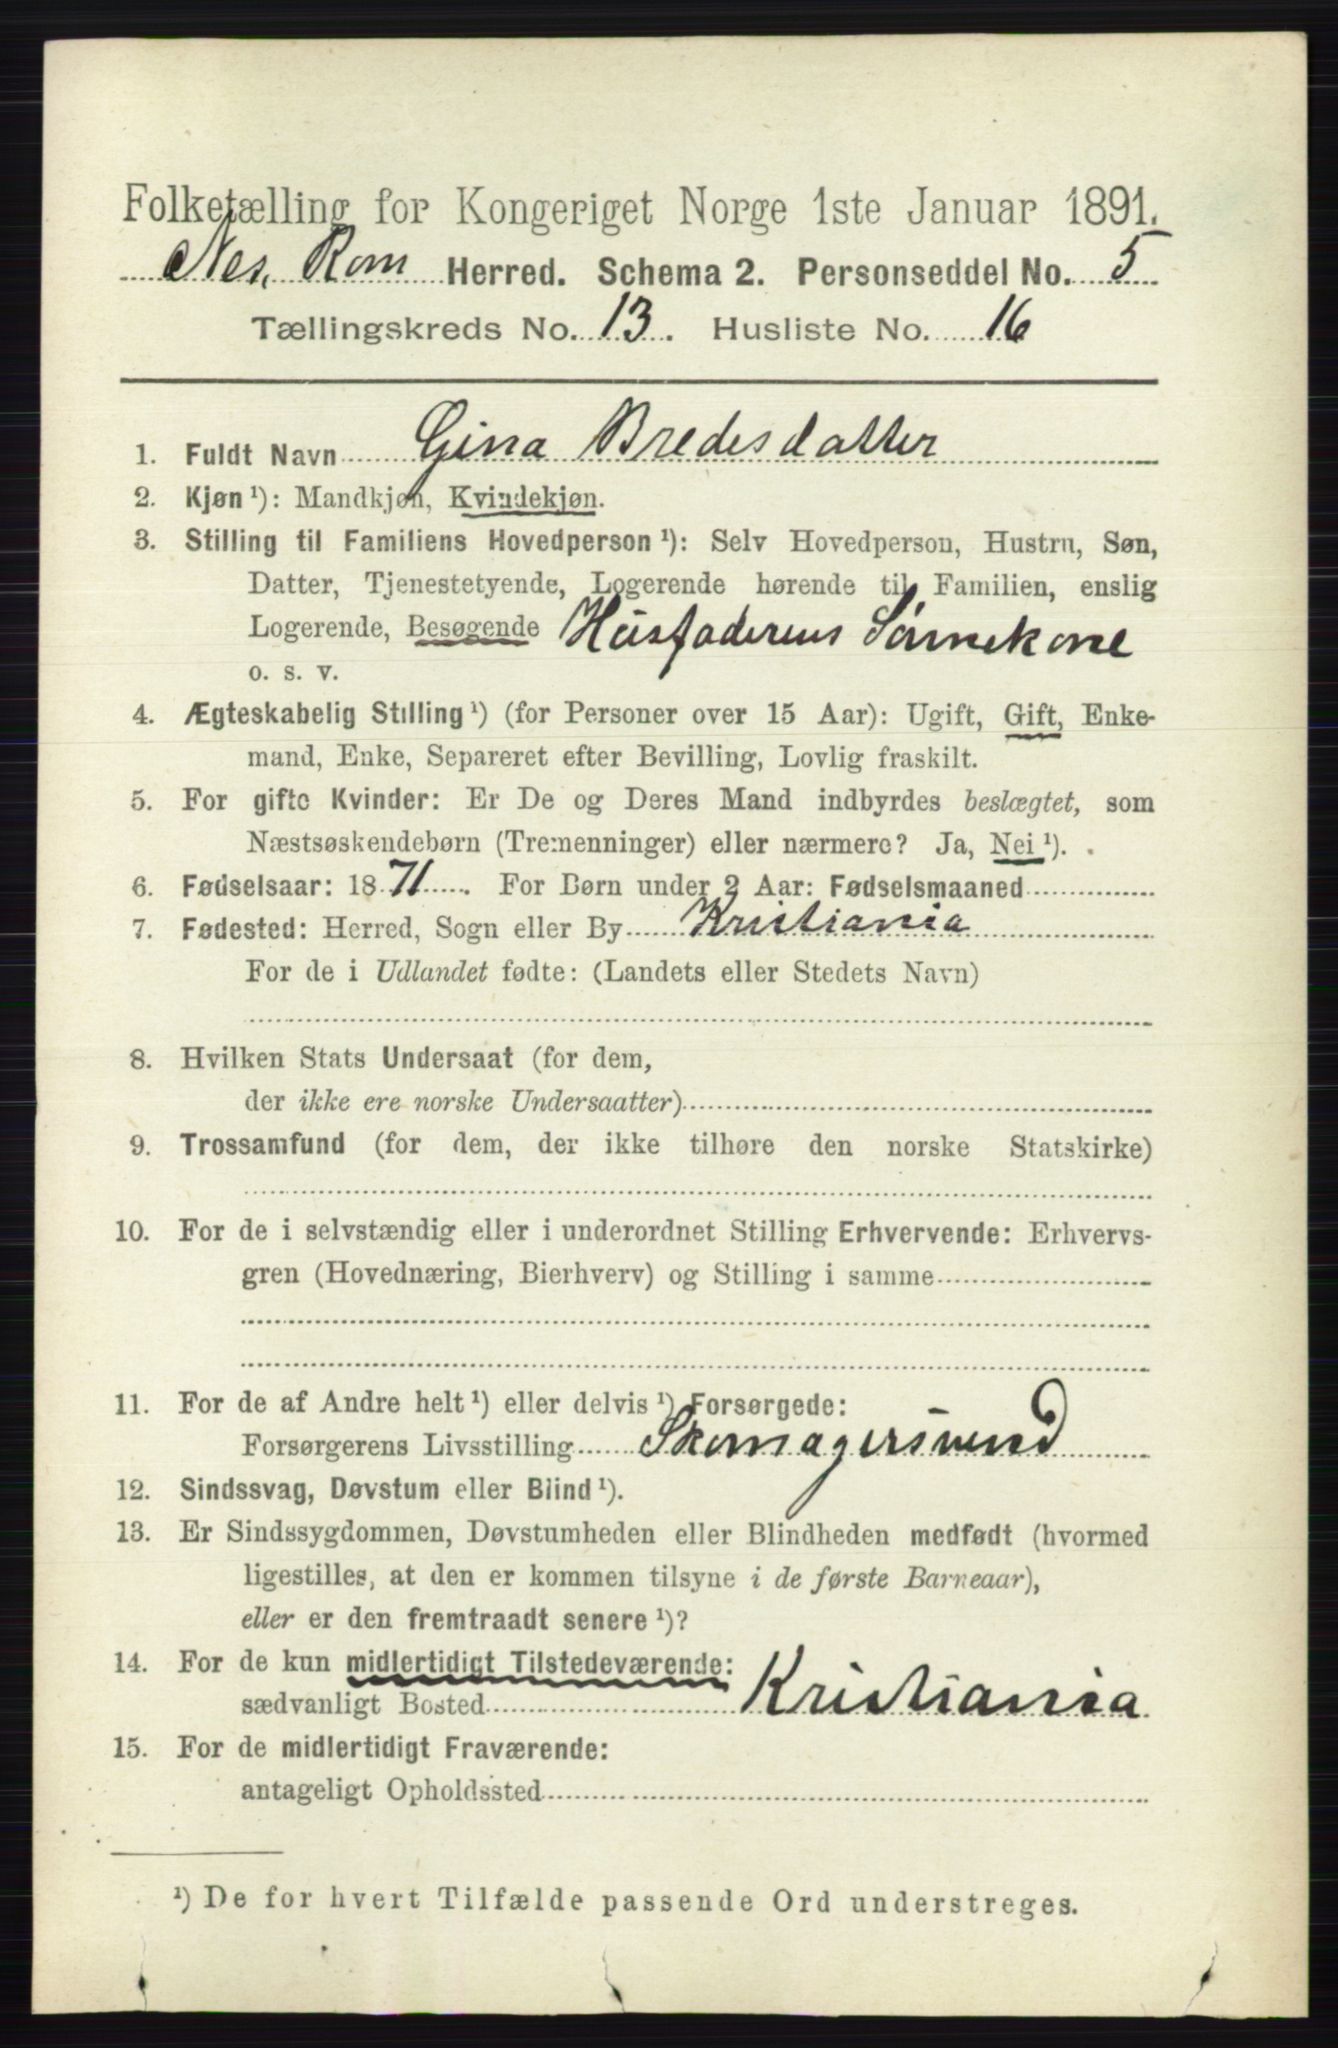 Folketælling for Kongeriget Norge 1ste Januar 1891.
Nes, Rom Herred. Schema 2. Personseddel No. 5
Tællingskreds No. 13. Husliste No. 16
1. Fuldt Navn Gina Bredesdatter
2. Kjøn ¹): Mandkjøn, Kvindekjøn.
3. Stilling til Familiens Hovedperson ¹): Selv Hovedperson, Hustru, Søn,
Datter, Tjenestetyende, Logerende hørende til Familien, enslig
Logerende, Besøgende Husfaderens Sønnekone
o. s. v.
4. Ægteskabelig Stilling ¹) (for Personer over 15 Aar): Ugift, Gift, Enke-
mand, Enke, Separeret efter Bevilling, Lovlig fraskilt.
5. For gifte Kvinder: Er De og Deres Mand indbyrdes beslægtet, som
Næstsøskendebørn (Tremenninger) eller nærmere? Ja, Nei ¹).
6. Fødselsaar: 1871. For Børn under 2 Aar: Fødselsmaaned
7. Fødested: Herred, Sogn eller By Kristiania
For de i Udlandet fødte: (Landets eller Stedets Navn)
8. Hvilken Stats Undersaat (for dem,
der ikke ere norske Undersaatter)
9. Trossamfund (for dem, der ikke tilhøre den norske Statskirke)
10. For de i selvstændig eller i underordnet Stilling Erhvervende: Erhvervs-
gren (Hovednæring, Bierhverv) og Stilling i samme
11. For de af Andre helt ¹) eller delvis ¹) Forsørgede:
Forsørgerens Livsstilling Skomagersvend
12. Sindssvag, Døvstum eller Blind ¹).
13. Er Sindssygdommen, Døvstumheden eller Blindheden medfødt (hvormed
ligestilles, at den er kommen tilsyne i de første Barneaar),
eller er den fremtraadt senere ¹)?
14. For de kun midlertidigt Tilstedeværende:
sædvanligt Bosted Kristiania
15. For de midlertidigt Fraværende:
antageligt Opholdssted
¹) De for hvert Tilfælde passende Ord understreges.